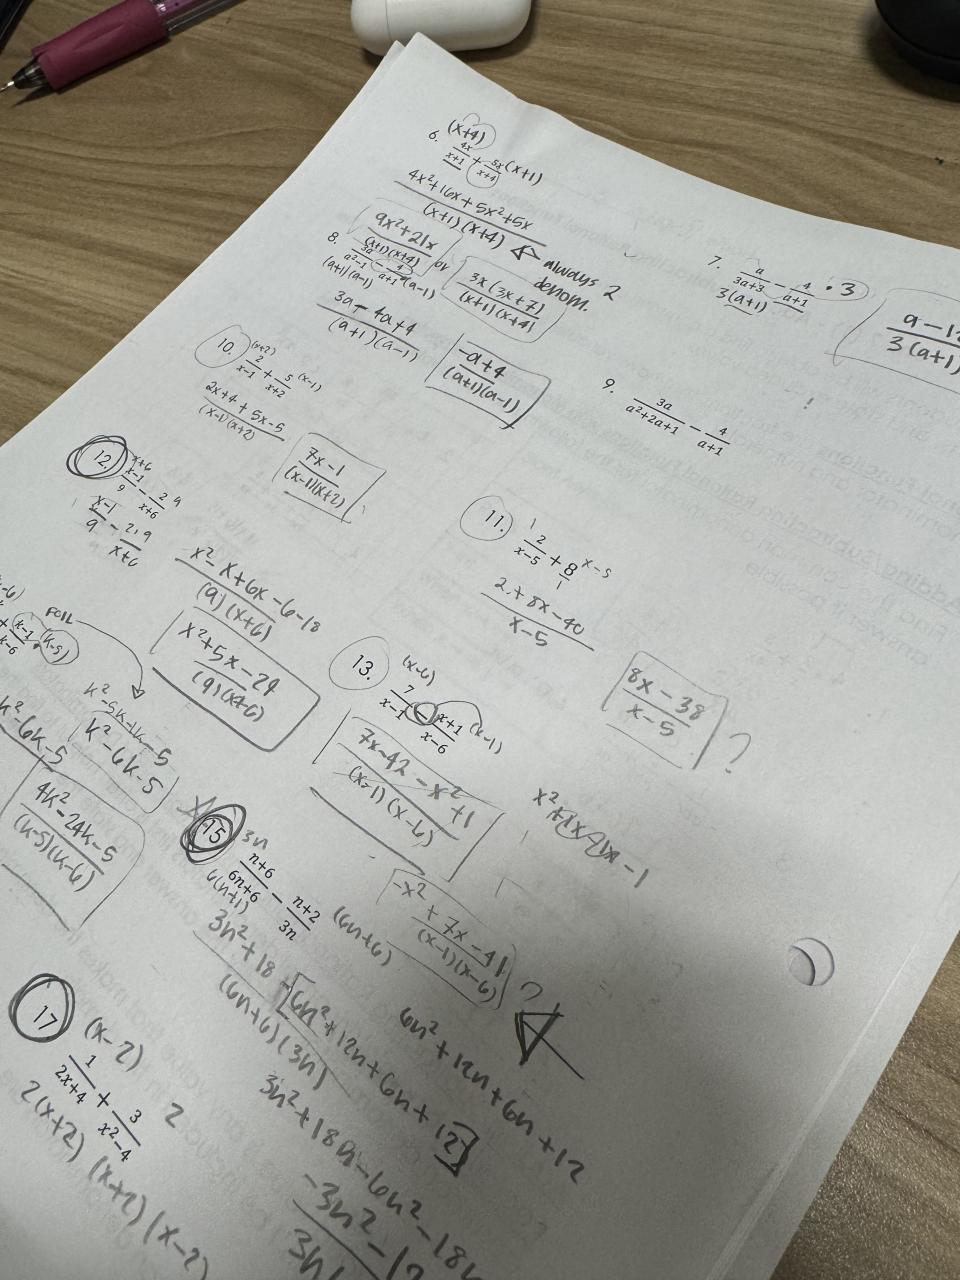 (x+4)
6. 4x/x+1 + 5x/x+4 (x+1)
4x²+16x+5x²+5x
(x+1)(x+4) always 2 denom.
9x²+21x
(x+1)(x+4)
or
3x(3x+7)
(x+1)(x+4)
7. a/3a+3 − 4/a+1 · 3
3(a+1)
a−12
3(a+1)
8. 3a/a²−1 − 4/a+1 (a−1)
(a+1)(a−1)
3a − 4a+4
(a+1)(a−1)
−a+4
(a+1)(a−1)
9. 3a/a²+2a+1 − 4/a+1
10. (x+2)
2/x−1 + 5/x+2 (x−1)
2x+4+5x−5
(x−1)(x+2)
7x−1
(x−1)(x+2)
11. 2/x−5 + 8/1 x−5
2+8x−40
x−5
8x−38
x−5
?
12. x+6
x−1/9 − 2/x+6 9
x−1/9 − 2·9/x+6
x²−x+6x−6−18
(9)(x+6)
x²+5x−24
(9)(x+6)
FOIL
k−1 (k−5)
k−6
k²−5k−1k−5
k²−6k−5
k²−6k−5
4k²−24k−5
(k−5)(k−6)
13. (x−6)
7/x−1 − x+1/x−6 (x−1)
7x−42−x²+1
(x−1)(x−6)
x²+1x−1x−1
−x²+7x−41
(x−1)(x−6)
?
15 3n
n+6/6n+6 − n+2/3n (6n+6)
6(n+1)
3n²+18−6n²+12n+6n+12
(6n+6)(3n)
6n²+12n+6n+12
3n²+18n−6n²−18n
−3n²−12
17 (x−2)
1/2x+4 + 3/x²−4 2
2(x+2) (x+2)(x−2)